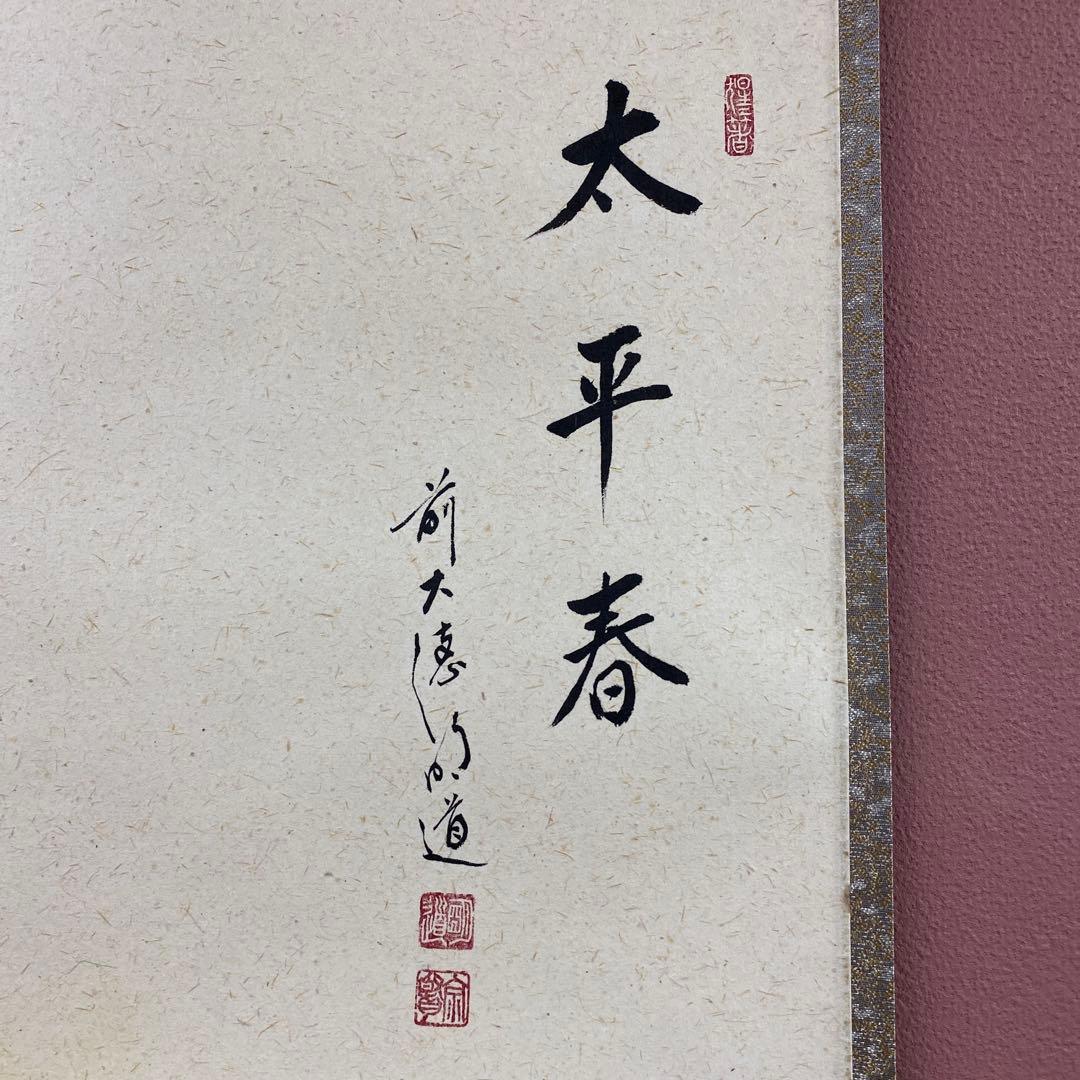 太平春
前大徳明道
明道